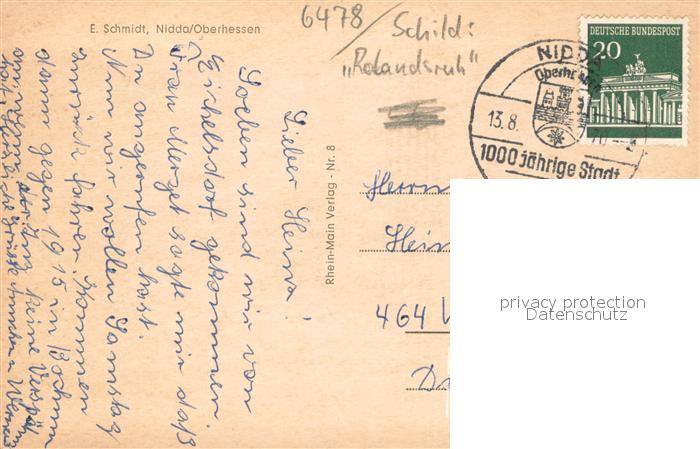 E. Schmidt, Nidda/Oberhessen
6478/ Schild:
„Rolandsruh"
DEUTSCHE BUNDESPOST
20
NIDDA
Oberhessen
13.8. 70
1000 jährige Stadt
Rhein-Main Verlag - Nr. 8
Lieber Heinz!
Soeben sind wir von
Eichelsdorf gekommen
Frau Merget sagte mir daß
Du angerufen hast.
Nun wir wollen Samstag
zurück fahren. Kommen
dann gegen 19 15 in Bochum
an, wenn der Zug keine Verspät.
hat.
Herrn
Hein
464 W
privacy protection
Datenschutz